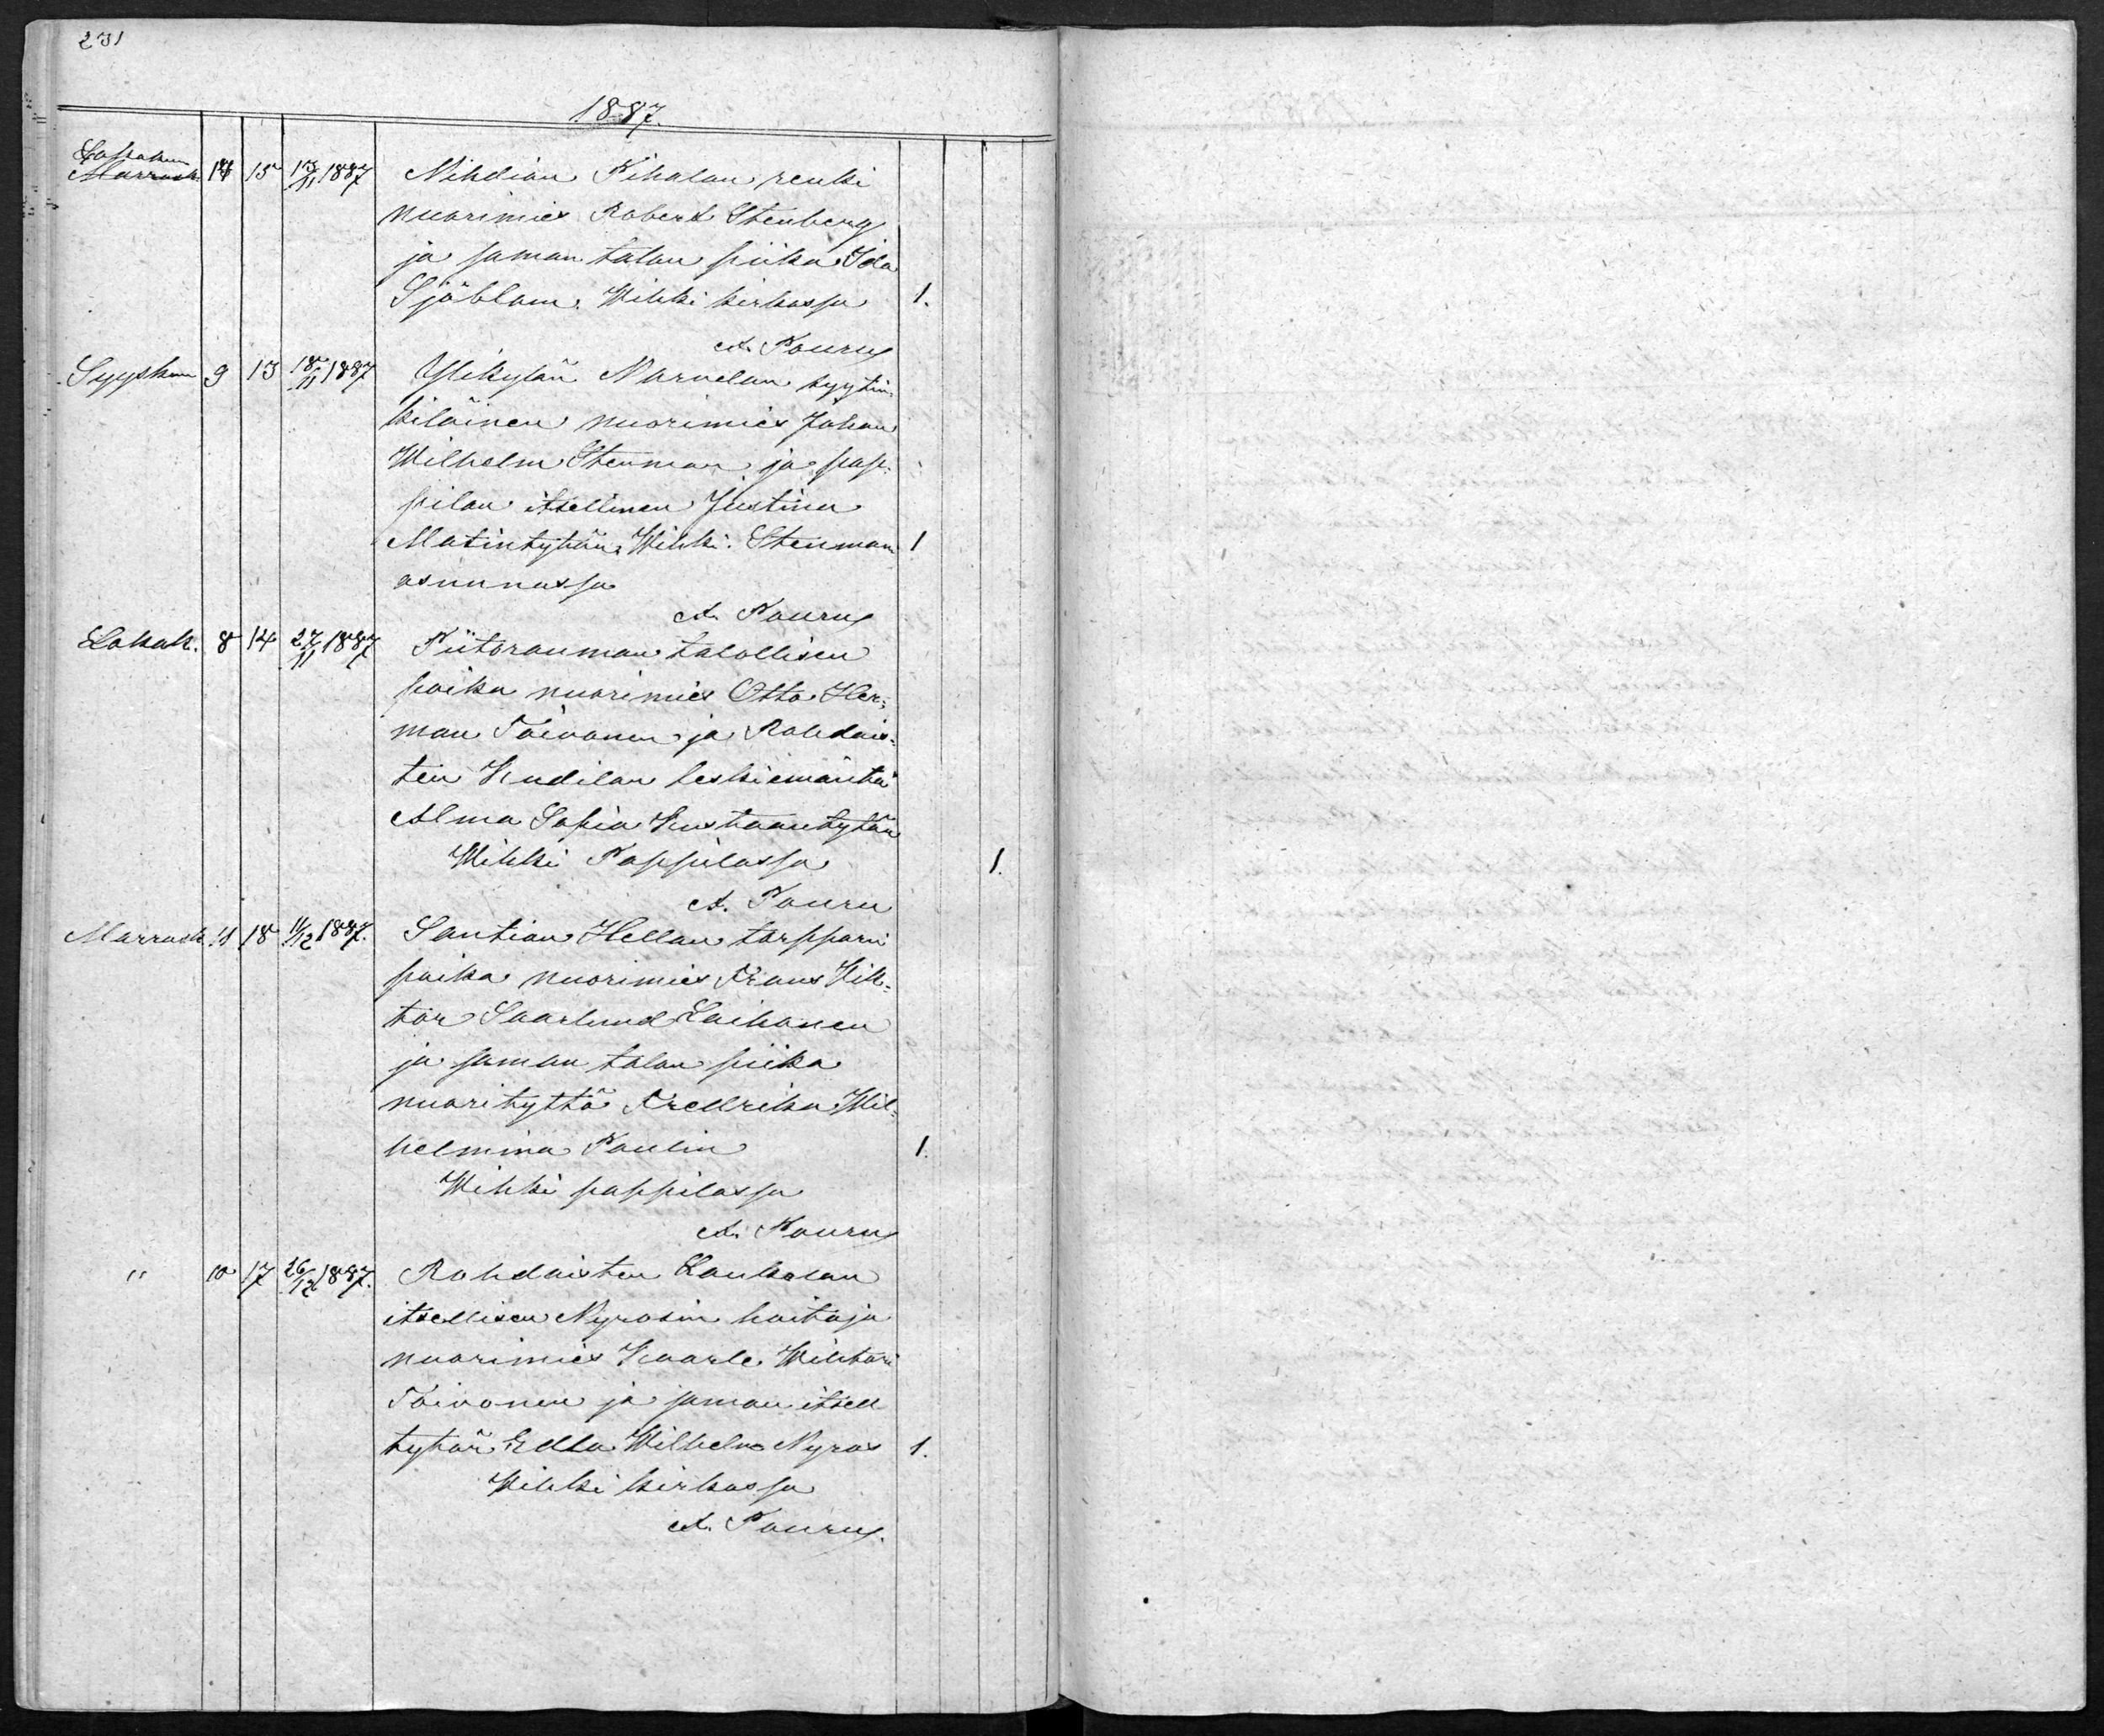 231
1887.
Lokakuu
Marrask. 15 13/11 1887 Nihdian Kihalan renki
nuorimies Robert Stenberg
ja saman talon piika Ida
Sjöblom. Wihki kirkossa 1.
A. Pouru
Syyskuu 9 13 18/11 1887 Ylikylän Naruelan syytin-
kiläinen nuorimies Johan
Wilhelm Stenman ja pap-
pilan itsellinen Justina
Matintytär. Wihki. Stenmanin 1
asunnossa
A. Pouru
Lokak. 8 14 27/11 1887 Piitorauman talollisen
poika nuorimies Otto Her-
man Toivonen ja Rohdais-
ten Kudilan leskiemäntä
Alma Sofia Kustaantytär
Wihki Pappilassa 1.
A. Pouru
Marrask. 11 18 11/12 1887. Santion Hellan torpparin
poika nuorimies Frans Wik-
tor Saarlund Laihonen
ja saman talon piika
nuorityttö Fredrika Wil-
helmina Paulin 1.
Wihki pappilassa
A. Pouru
" 10 17 26/12 1887. Rohdaisten Laukolan
itsellisen Nyrosin hoitaja
nuorimies Kaarle Wihtori
Toivonen ja saman itsell
tytär Edla Wilhelm. Nyros 1.
Wihki kirkossa
A. Pouru.